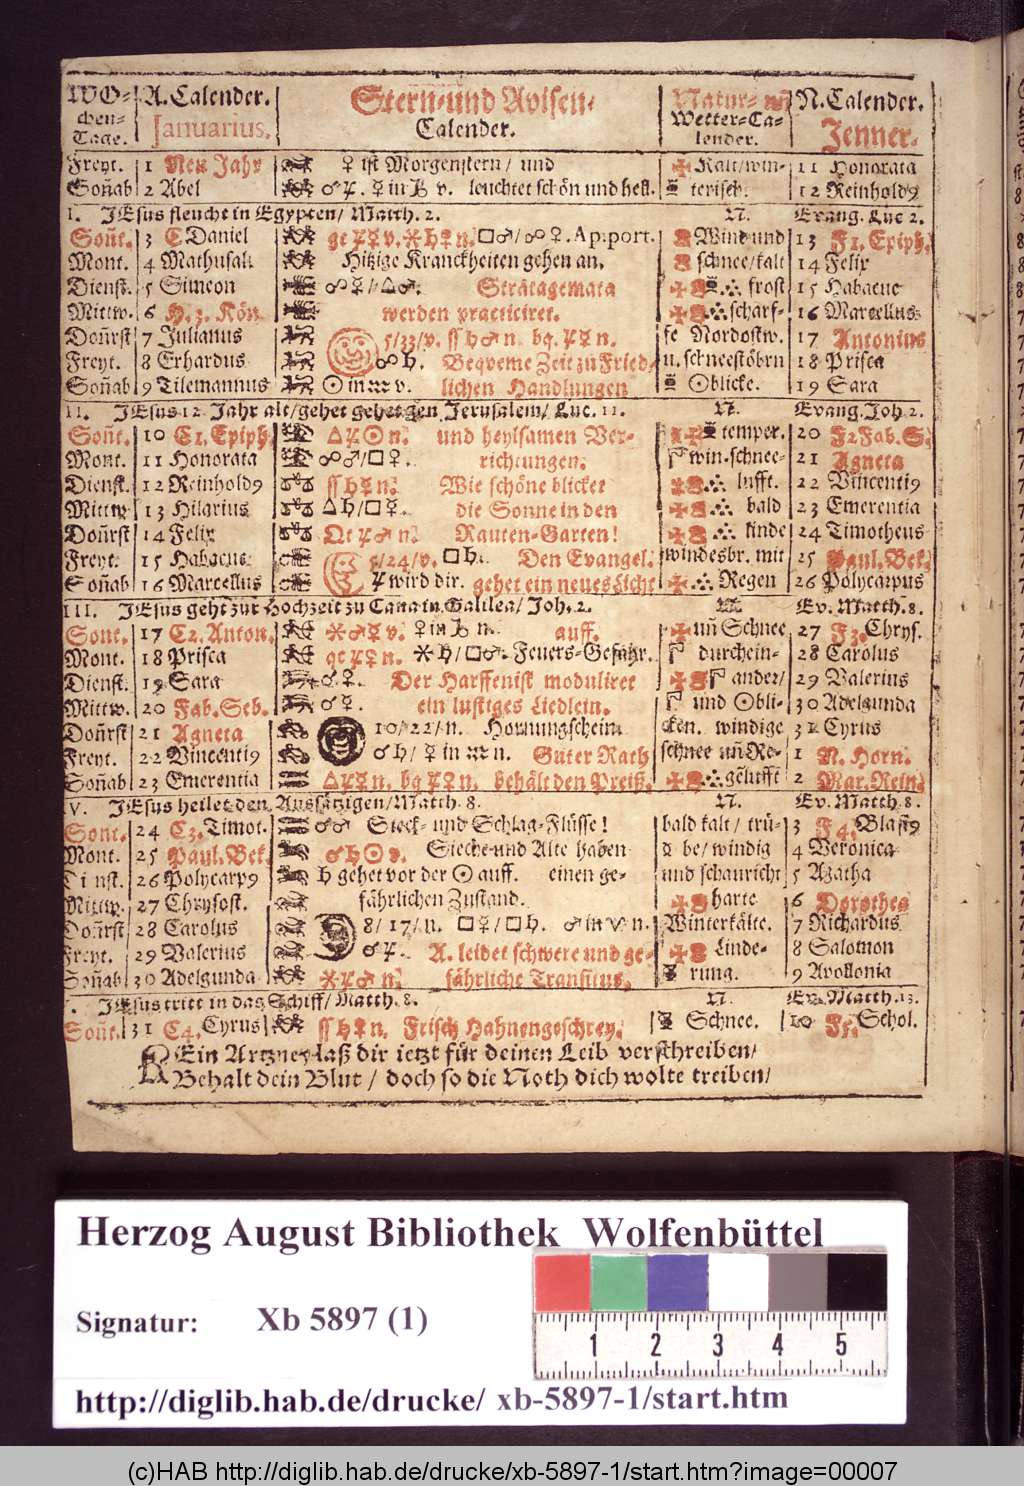 WO- A. Calender. Stern- und Avisen- Natur- un N. Calender.
chen- Januarius. Calender. Wetter-Ca- Jenner.
Tage. lender.
Freyt. 1 Neu Jahr ♀ ist Morgenstern / und Kalt/win- 11 Honorata
Soñab 2 Abel ☿ in ♑ v. leuchtet schön und hell. terisch. 12 Reinhold9
I. JEsus fleucht in Egypten/ Matth. 2. N. Evang. Luc 2.
Soñt. 3 C Daniel □♂/☍♀. Ap. port. Wind und 13 F1. Epiph.
Mont. 4 Mathusal. Hitzige Kranckheiten gehen an. schnee/kalt 14 Felix
Dienst. 5 Simeon Stratagemata frost 15 Habacuc
Mittw. 6 H. 3. Kön. werden practiciret. scharf- 16 Marcellus
Doñrst 7 Julianus 5/33/v. fe Nordostw. 17 Antonius
Freyt. 8 Erhardus ☍♄. Beqveme Zeit zu Fried- u. schneestöbrn 18 Prisca
Soñab 9 Tilemannus ☉ in ♒ v. lichen Handlungen ☉blicke. 19 Sara
II. JEsus 12 Jahr alt/gehet gehet gen Jerusalem/ Luc. 11. N. Evang. Joh 2.
Soñt. 10 C1. Epiph. und heylsamen Ver- temper. 20 F2 Fab. S.
Mont. 11 Honorata ☍♂/□♀. richtungen. win-schnee- 21 Agneta
Dienst. 12 Reinhold9 Wie schöne blicket lufft. 22 Vincenti9
Mittw 13 Hilarius △♄/□☿. die Sonne in den bald 23 Emerentia
Doñrst 14 Felix Rauten-Garten! linde 24 Timotheus
Freyt. 15 Habacus 5/24/v. □♄. Den Evangel. windesbr. mit 25 Paul. Bek.
Soñab 16 Marcellus wird dir. gehet ein neues Licht Regen 26 Polycarpus
III. JEsus geht zur Hochzeit zu Cana in Galilea/ Joh. 2. N. Ev. Matth. 8.
Sont. 17 C2. Anton. auff. uñ Schnee 27 F3. Chrys.
Mont. 18 Prisca Feuers-Gefahr. durchein- 28 Carolus
Dienst. 19 Sara Der Harffenist moduliret ander/ 29 Valerius
Mittw. 20 Fab. Seb. ♂☿. ein lustiges Liedlein. und ☉bli- 30 Adelgunda
Doñrst 21 Agneta 10/22/n. Hornungschein cken. windige 31 Cyrus
Freyt. 22 Vincenti9 ♂♄/☿ in ♒ n. Guter Rath schnee uñ Re- 1 N. Horn.
Soñab 23 Emerentia behält den Preiß. gelufft 2 Mar. Rein.
IV. JEsus heilet den Aussätzigen/Matth. 8. N. Ev. Matth 8.
Sont. 24 C3. Timot. Steck- und Schlag-Flüsse! bald kalt/ trü- 3 F4. Blasi9
Mont. 25 Paul. Bek. Sieche und Alte haben be/ windig 4 Veronica
Dienst. 26 Polycarp9 ♄ gehet vor der ☉ auff. einen ge- und schauricht 5 Agatha
Mittw. 27 Chrysost. fährlichen Zustand. harte 6 Dorothea
Doñrst 28 Carolus 8/17/n. □☿/□♄. ♂ in ♈ n. Winterkälte. 7 Richardus
Freyt. 29 Valerius A. leidet schwere und ge- Linde- 8 Salomon
Soñab 30 Adelgunda fährliche Transitus. rung. 9 Apollonia
V. JEsus tritt in das Schiff/ Matth. 8. N. Ev. Matth. 13.
Soñt. 31 C4. Cyrus Frisch Hahnengeschrey. Schnee. 10 F5. Schol.
Kein Artzney laß dir ietzt für deinen Leib verschreiben/
Behalt dein Blut / doch so die Noth dich wolte treiben/
Herzog August Bibliothek Wolfenbüttel
Signatur: Xb 5897 (1)
1 2 3 4 5
http://diglib.hab.de/drucke/ xb-5897-1/start.htm
(c)HAB http://diglib.hab.de/drucke/xb-5897-1/start.htm?image=00007